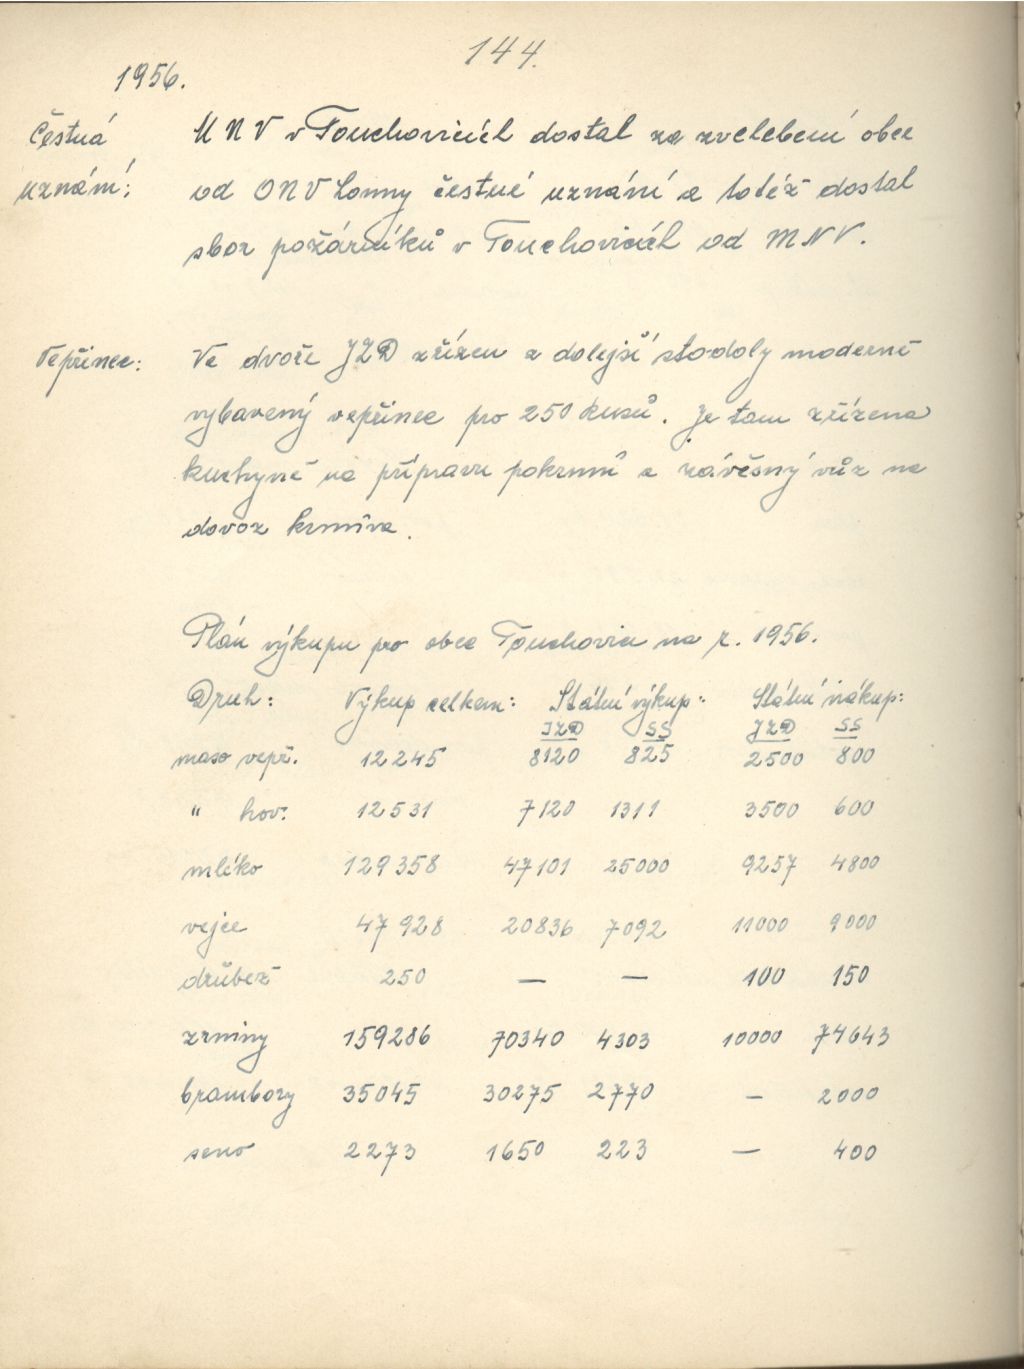 144.
1956.
Čestná uznání:
MNV v Touchovicích dostal za zvelebení obce
od ONV Louny čestné uznání a totéž dostal
sbor požárníků v Touchovicích od MNV.
Vepřinec:
Ve dvoře JZD zřízen z dolejší stodoly moderně
vybavený vepřinec pro 250 kusů. Je tam zřízena
kuchyně na přípravu pokrmů a závěsný vůz na
dovoz krmiva.
Plán výkupu pro obec Touchovice na r. 1956.
Druh: Výkup celkem: Státní výkup: Státní nákup:
JZD SS JZD SS
maso vepř. 12245 8120 825 2500 800
" hov. 12531 7120 1311 3500 600
mléko 129358 47101 25000 9257 4800
vejce 47928 20836 7092 11000 9000
drůbež 250 — — 100 150
zrniny 159286 70340 4303 10000 74643
brambory 35045 30275 2770 — 2000
seno 2273 1650 223 — 400